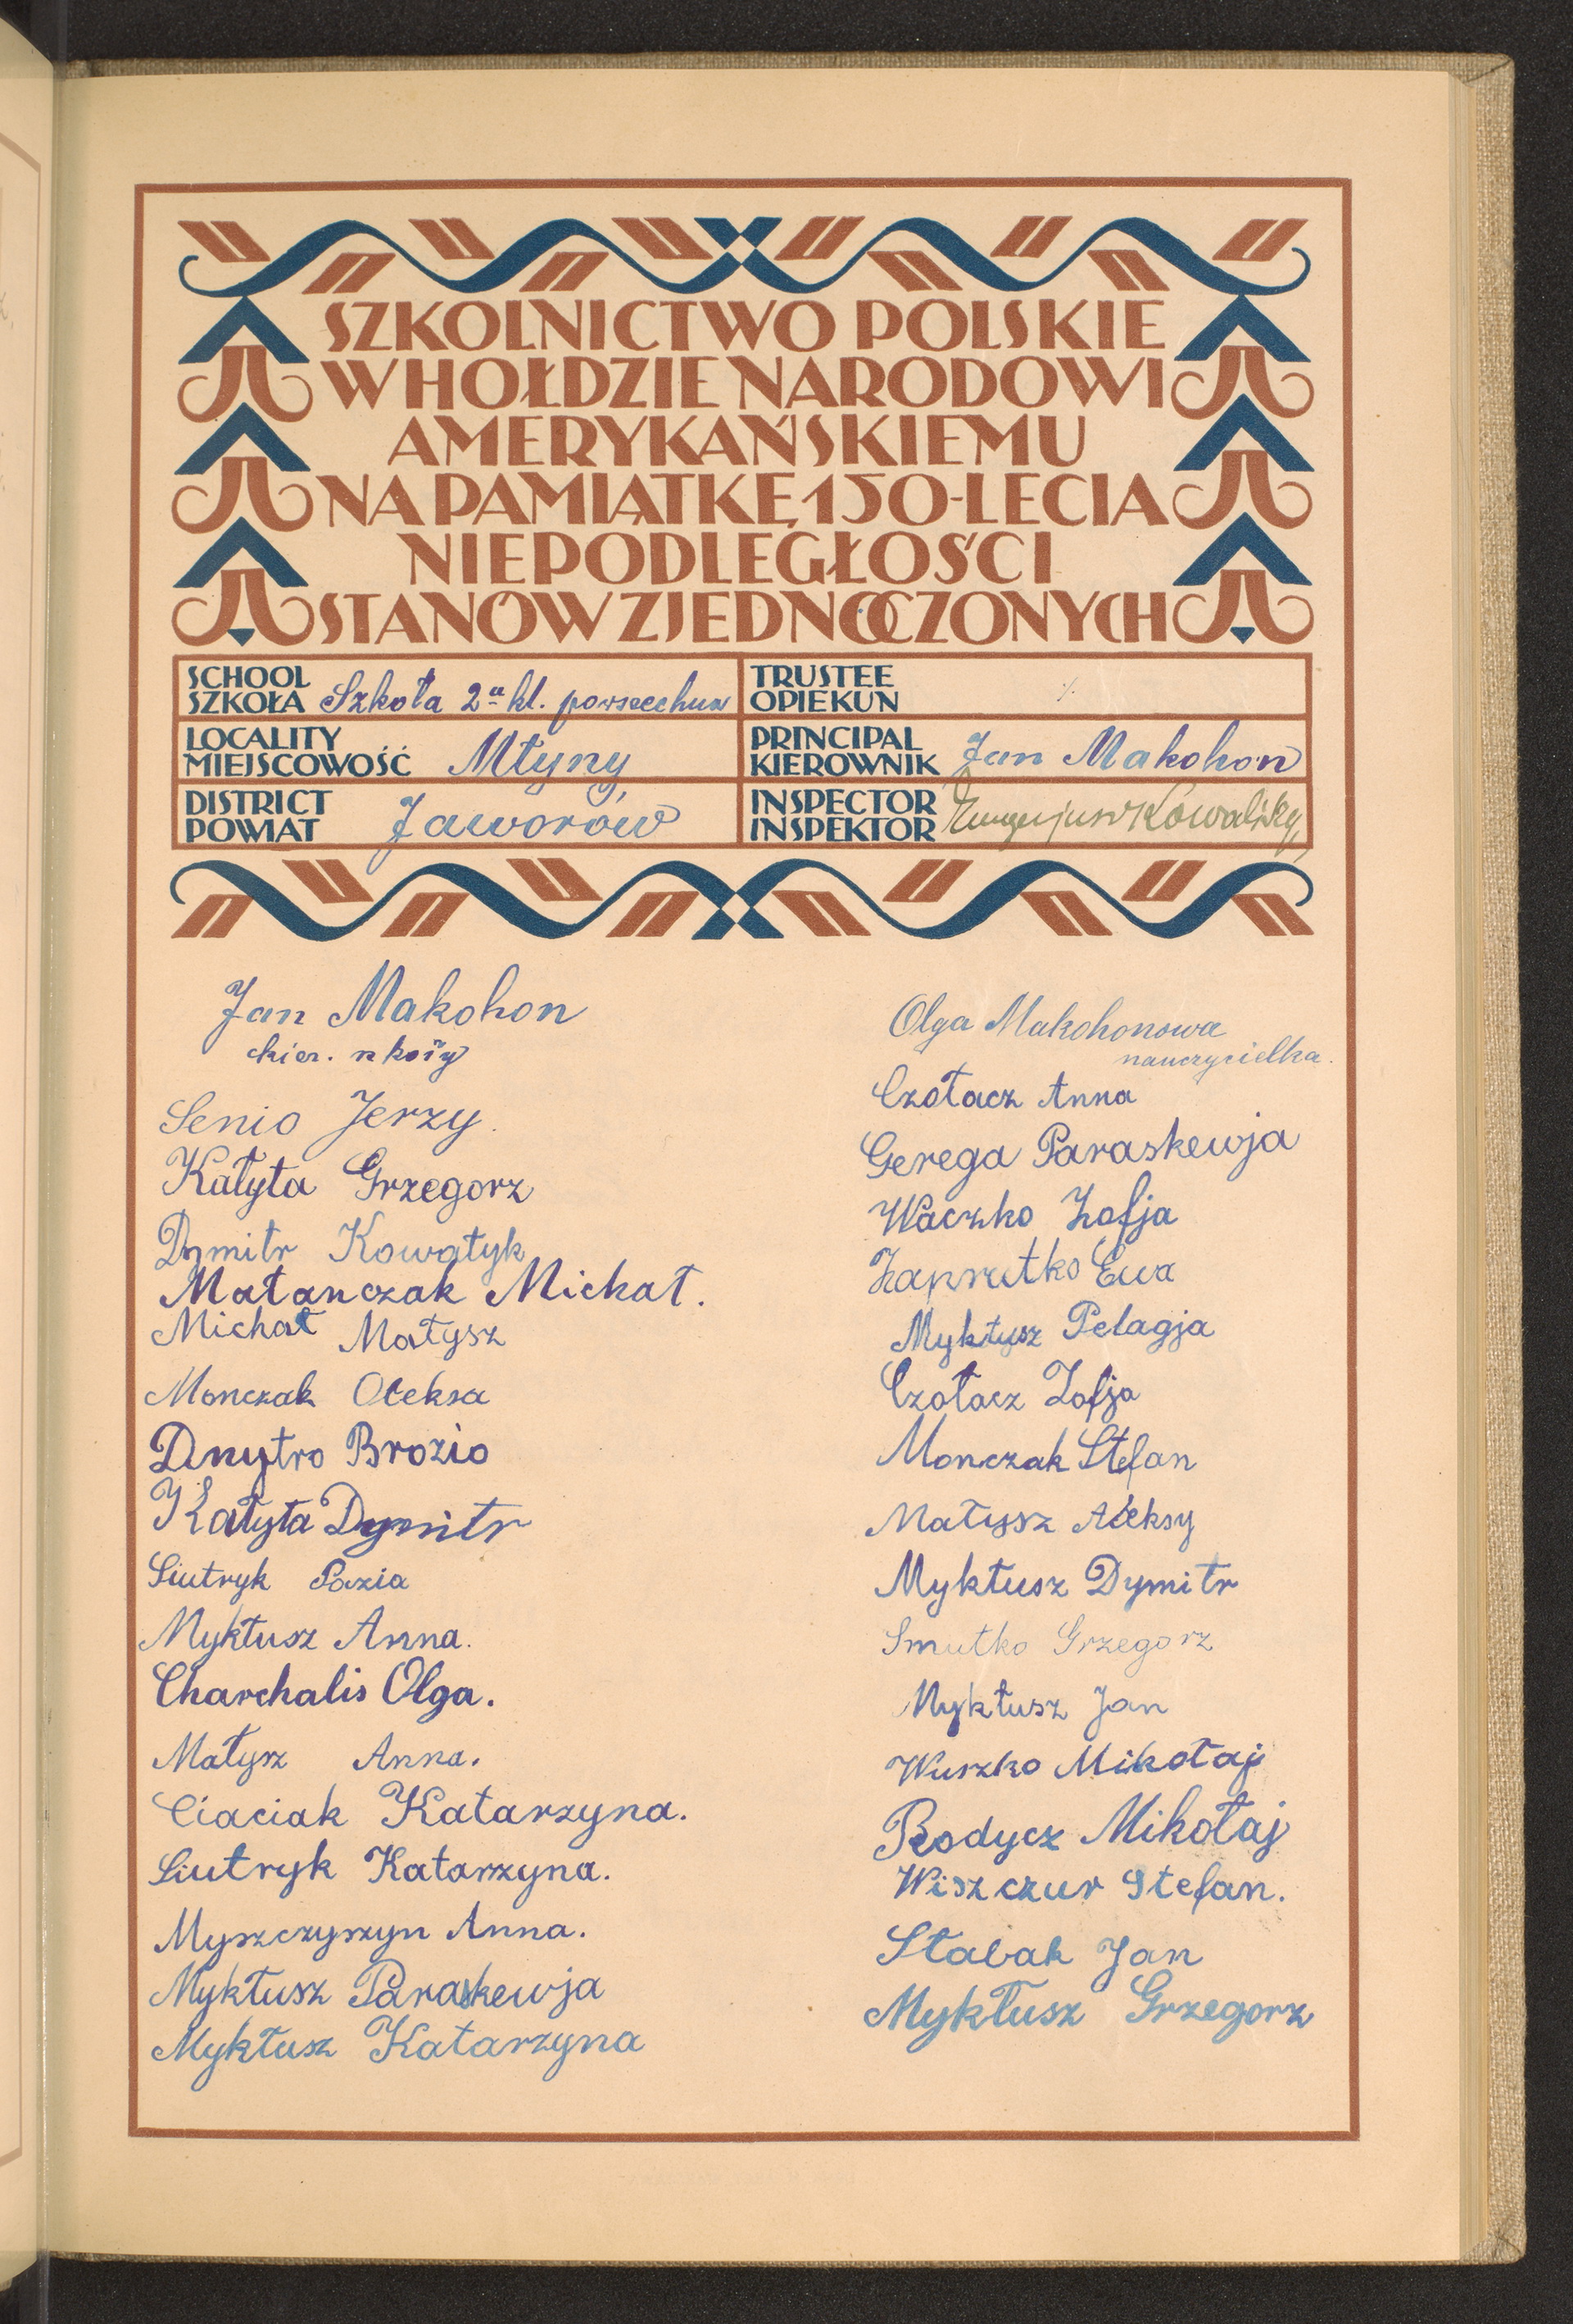 SZKOLNICTWO POLSKIE
W HOŁDZIE NARODOWI
AMERYKAŃSKIEMU
NA PAMIĄTKĘ 150-LECIA
NIEPODLEGŁOŚCI
STANÓW ZJEDNOCZONYCH
SCHOOL
SZKOŁA Szkoła 2-a kl. powszechna
TRUSTEE
OPIEKUN
LOCALITY
MIEJSCOWOŚĆ Młyny,
PRINCIPAL
KIEROWNIK Jan Makohon
DISTRICT
POWIAT Jaworów
INSPECTOR
INSPEKTOR Eugenjusz Kowalsky
Jan Makohon
kier. szkoły
Senio Jerzy.
Kałyta Grzegorz
Dymitr Kowałyk
Małanczak Michał.
Michał Małysz
Monczak Ołeksa
Dmytro Brozio
Kałyta Dymitr
Siutryk Pazia
Myktusz Anna.
Charchalis Olga.
Małysz Anna.
Ciaciak Katarzyna.
Siutryk Katarzyna.
Myszczyszyn Anna.
Myktusz Paraskewja
Myktusz Katarzyna
Olga Makohonowa
nauczycielka.
Czołacz Anna
Gerega Paraskewja
Waczko Zofja
Zaprutko Ewa
Myktusz Pelagja
Czołacz Zofja
Monczak Stefan
Małysz Aleksy
Myktusz Dymitr
Smutko Grzegorz
Myktusz Jan
Wuszko Mikołaj
Rodycz Mikołaj
Wiszczur Stefan.
Stabak Jan
Myktusz Grzegorz